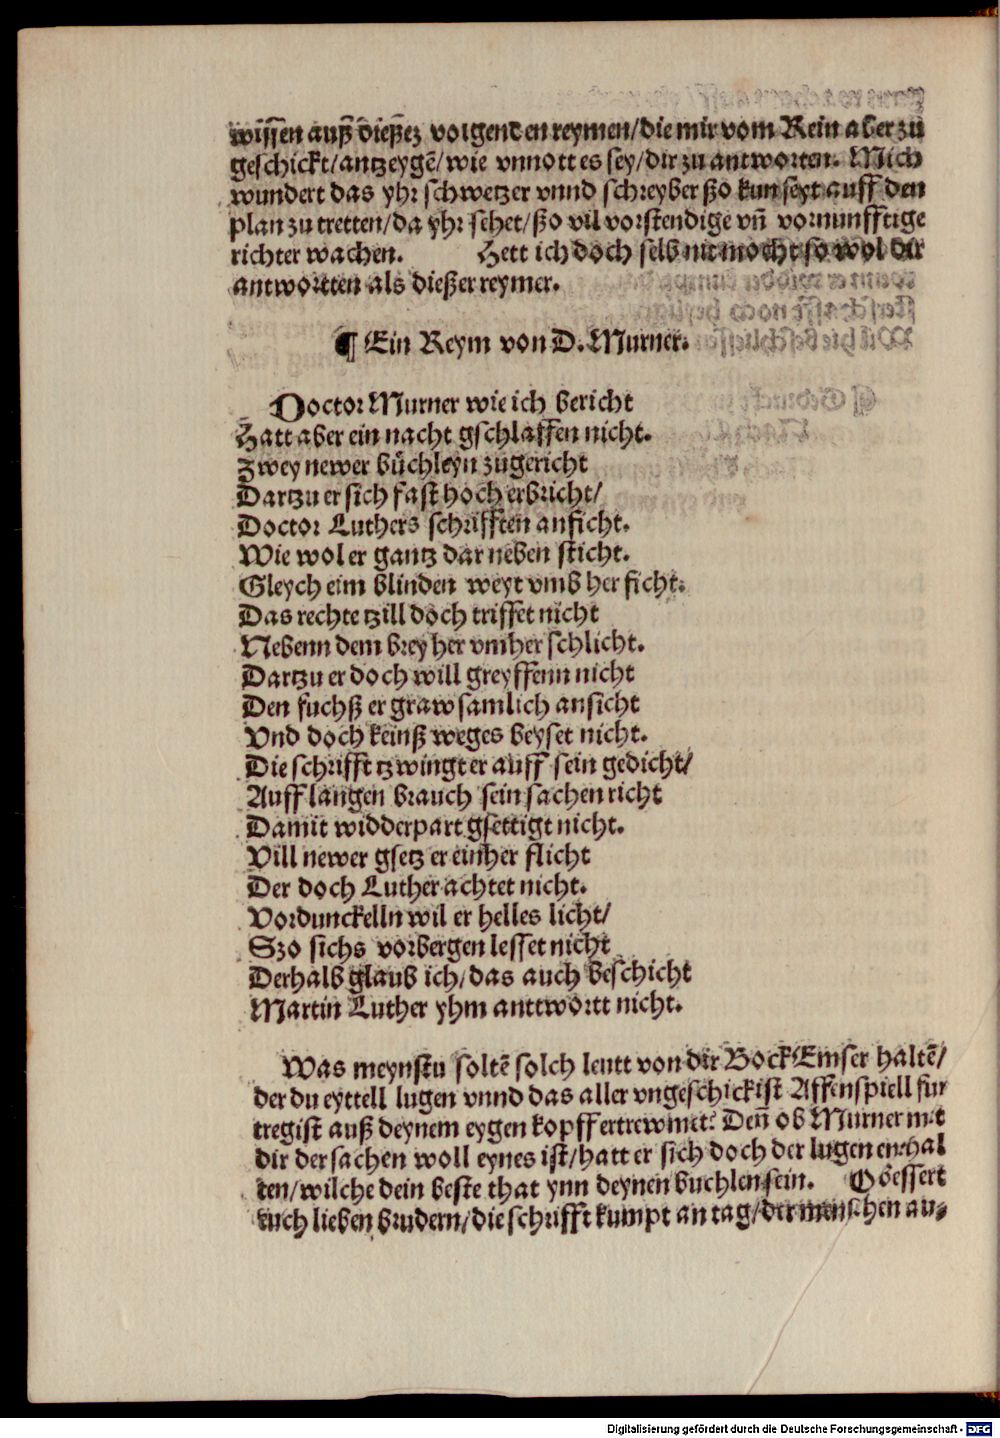 wissen auß dießez volgenden reymen/die mir vom Rein aber zu
geschickt/antzeygẽ/wie vnnott es sey/dir zu antworten. Mich
wundert das yhr schwetzer vnnd schreyber ßo kun seyt auff den
plan zu tretten/da yhr sehet/ßo vil vorstendige vñ vornunfftige
richter wachen. Hett ich doch selb nit mocht so wol dir
antwortten als dießer reymer.
¶ Ein Reym von D. Murner.
Doctor Murner wie ich bericht
Hatt aber ein nacht gschlaffen nicht.
Zwey newer bůchleyn zugericht
Dartzu er sich fast hoch erbricht/
Doctor Luthers schrifften anficht.
Wie wol er gantz dar neben sticht.
Gleych eim blinden weyt vmb her ficht.
Das rechte tzill doch triffet nicht
Nebenn dem brey her vmher schlicht.
Dartzu er doch will greyffenn nicht
Den fuchß er grawsamlich ansicht
Vnd doch keinß weges beyset nicht.
Die schrifft tzwingt er auff sein gedicht/
Auff langen brauch sein sachen richt
Damit widderpart gsettigt nicht.
Vill newer gsetz er einher flicht
Der doch Luther achtet nicht.
Vordunckelln wil er helles licht/
Szo sichs vorbergen lesset nicht
Derhalb glaub ich/das auch beschicht
Martin Luther yhm anttwortt nicht.
Was meynstu soltẽ solch leutt von dir Bock Emser haltẽ/
der du eyttell lugen vnnd das aller vngeschickist Affenspiell fur
tregist auß deynem eygen kopff ertrewmet? Deñ ob Murner mit
dir der sachen woll eynes ist/hatt er sich doch der lugen enthal
ten/wilche dein beste that ynn deynen buchlen sein. O bessert
euch lieben brudern/die schrifft kumpt an tag/der menschen au⸗
Digitalisierung gefördert durch die Deutsche Forschungsgemeinschaft - DFG